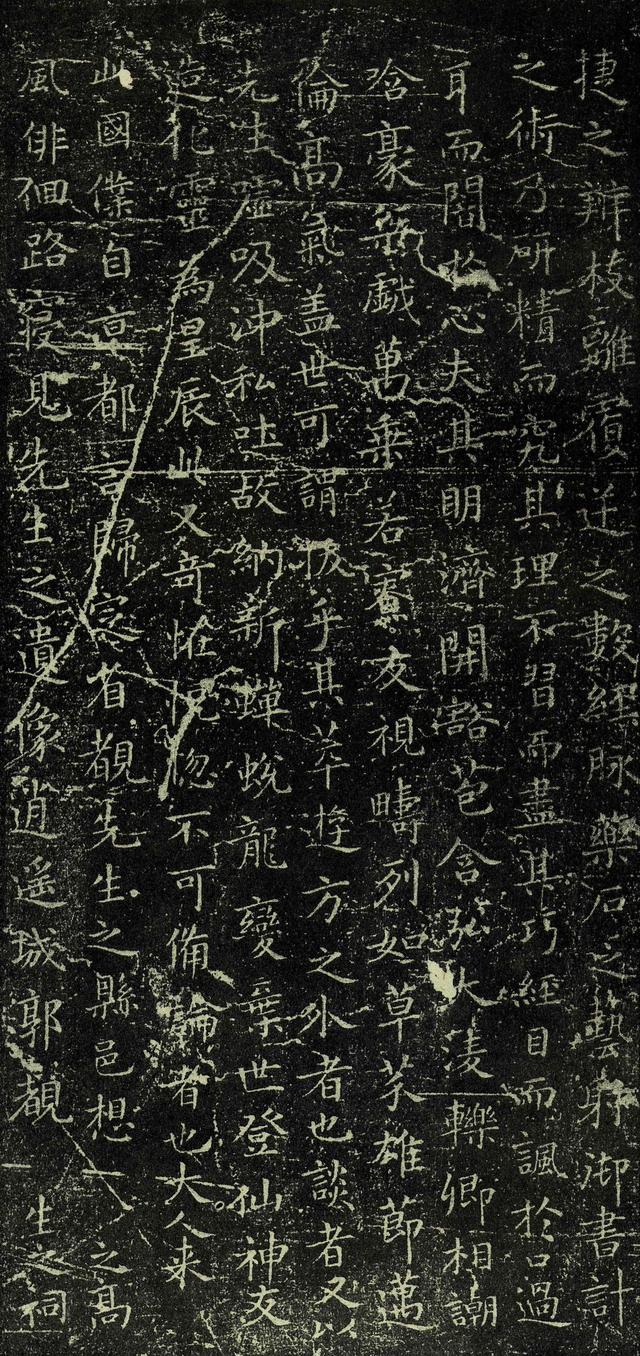 捷之辯枝離覆逆之數經脉藥石之藝射御書計
之術乃研精而究其理不習而盡其巧經目而諷於口過
耳而闇於心夫其明濟開豁苞含弘大淩轢卿相謿
哈豪桀戲萬乘若寮友視疇列如草芥雄節邁
倫高氣蓋世可謂拔乎其萃遊方之外者也談者又以
先生噓吸沖和吐故納新蟬蛻龍變棄世登仙神友
造化靈為星辰此又奇怪恍惚不可備論者也大人来
此國僕自京都言歸定省覩先生之縣邑想之高
風俳佪路寢見先生之遺像逍遥城郭覩生之祠